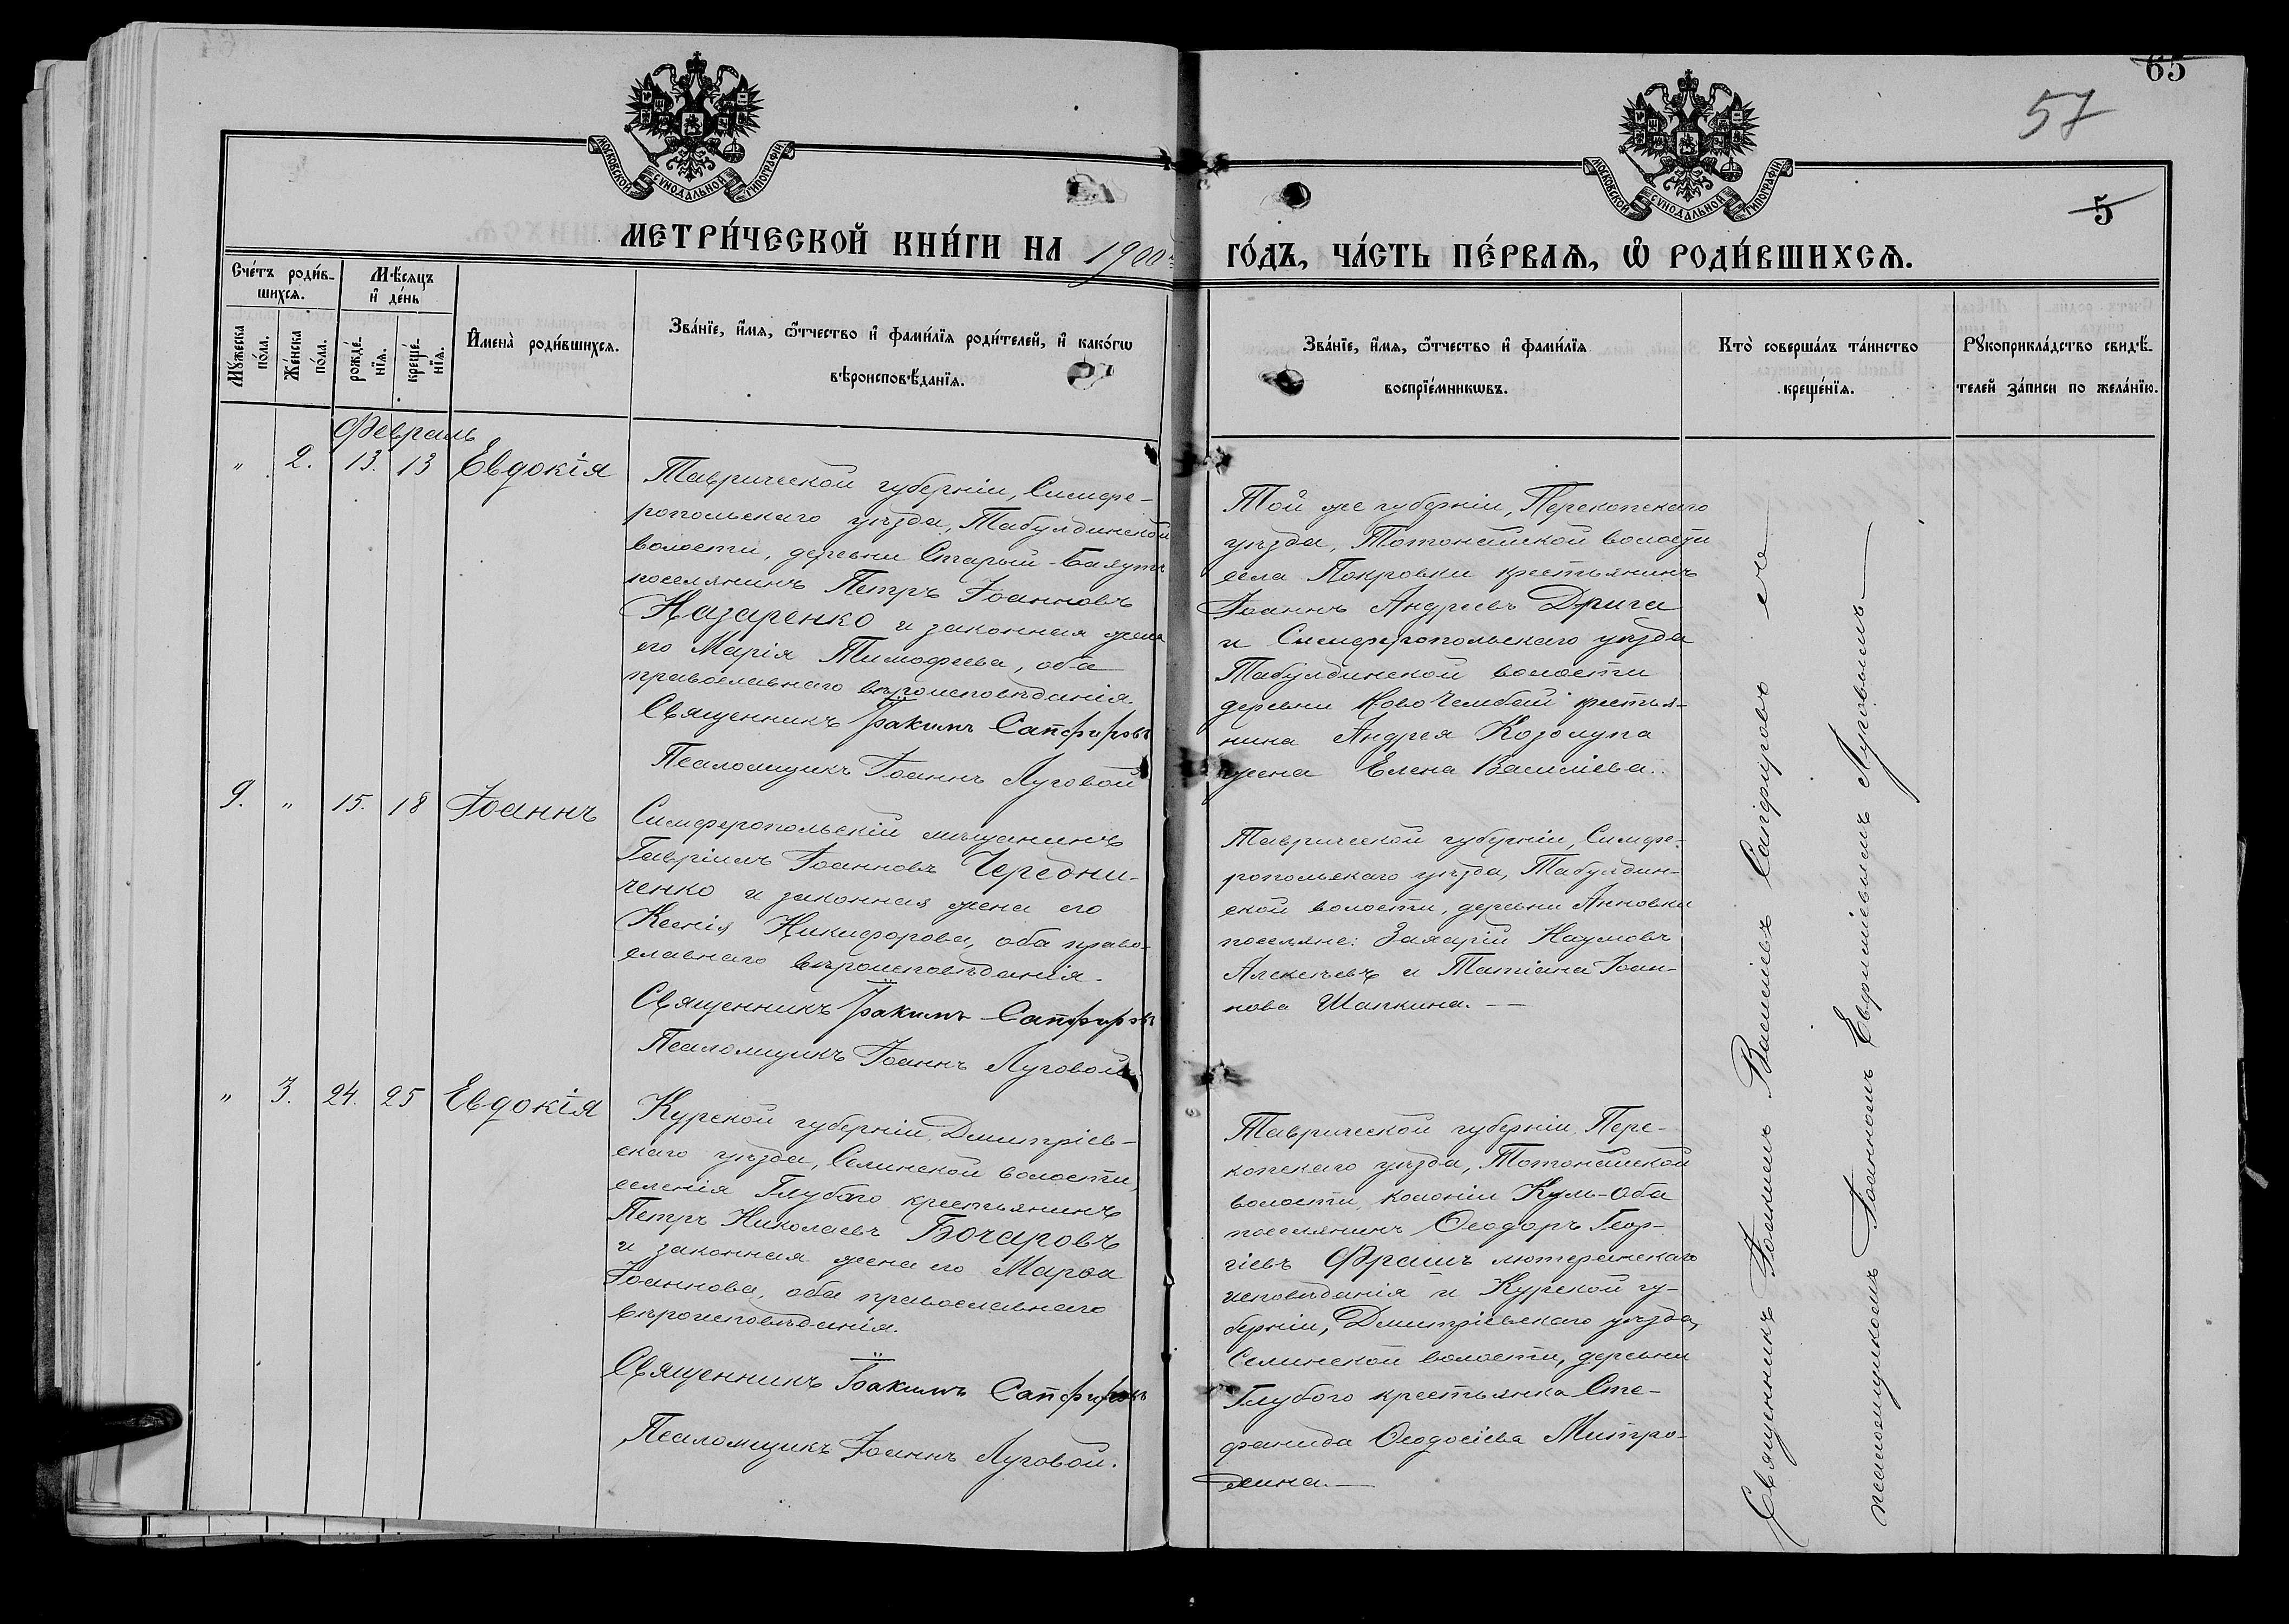 65
57
5
МОСКОВСКОЙ СѴНОДАЛЬНОЙ ТИПОГРАФІИ
МОСКОВСКОЙ СѴНОДАЛЬНОЙ ТИПОГРАФІИ
МЕТРИ́ЧЕСКОЙ КНИ́ГИ НА 1900й
ГО́ДЪ, ЧА́СТЬ ПЕ́РВАѦ, Ѡ҆ РОДИ́ВШИХСѦ.
Сче́тъ роди́в-
шихсѧ.
Мѣ́сѧцъ
и҆ де́нь
Мꙋ́жеска
по́ла.
Же́нска
по́ла.
рожде́-
нїѧ.
креще́-
нїѧ.
И҆мена̀ роди́вшихсѧ.
Зва́нїе, и҆́мѧ, ѻ҆́тчество и҆ фами́лїѧ роди́телей, и҆ како́гѡ
вѣроисповѣ́данїѧ.
Зва́нїе, и҆́мѧ, ѻ҆́тчество и҆ фами́лїѧ
воспрїе́мникѡвъ.
Кто̀ соверша́лъ та́инство
креще́нїѧ.
Рꙋкоприкла́дство свидѣ́-
телей за́писи по жела́нїю.
Февраль
" 2. 13. 13 Евдокія
Таврической губерніи, Симфе-
ропольскаго уѣзда, Табулдинской
волости, деревни Старый-Баяутъ
поселянинъ Петръ Іоанновъ
Назаренко и законная жена
его Марія Тимофеева, оба
православнаго вѣроисповѣданія.
Священникъ Іоакимъ Сапфировъ
Псаломщикъ Іоаннъ Луговой
Той же губерніи, Перекопскаго
уѣзда, Тотонайской волости
села Покровки крестьянинъ
Іоаннъ Андреевъ Дрига
и Симферопольскаго уѣзда
Табулдинской волости
деревни Ново Чембай крестья-
нина Андрея Козолупа
жена Елена Василіева.
9. " 15. 18 Іоаннъ
Симферопольскій мѣщанинъ
Гавріилъ Іоанновъ Чередни-
ченко и законная жена его
Ксенія Никифорова, оба право-
славнаго вѣроисповѣданія.
Священникъ Іоакимъ Сапфировъ
Псаломщикъ Іоаннъ Луговой.
Таврической губерніи, Симфе-
ропольскаго уѣзда, Табулдин-
ской волости, деревни Анновки
поселяне: Захарій Наумовъ
Алексѣевъ и Татіана Іоан-
нова Шапкина. —
" 3. 24. 25 Евдокія
Курской губерніи, Дмитріев-
скаго уѣзда, Селинской волости,
селенія Глубаго крестьянинъ
Петръ Николаевъ Бочаровъ
и законная жена его Марѳа
Іоаннова, оба православнаго
вѣроисповѣданія.
Священникъ Іоакимъ Сапфировъ
Псаломщикъ Іоаннъ Луговой.
Таврической губерніи Пере-
копскаго уѣзда, Тотонайской
волости, колоніи Куль-Оба
поселянинъ Ѳеодоръ Геор-
гіевъ Фрашъ лютеранскаго
исповѣданія и Курской гу-
берніи, Дмитріевскаго уѣзда,
Селинской волости, деревни
Глубого крестьянка Сте-
фанида Ѳеодосіева Митро-
хина. —
Священникъ Іоакимъ Василіевъ Сапфировъ съ
псаломщикомъ Іоанномъ Евфиміевымъ Луговымъ